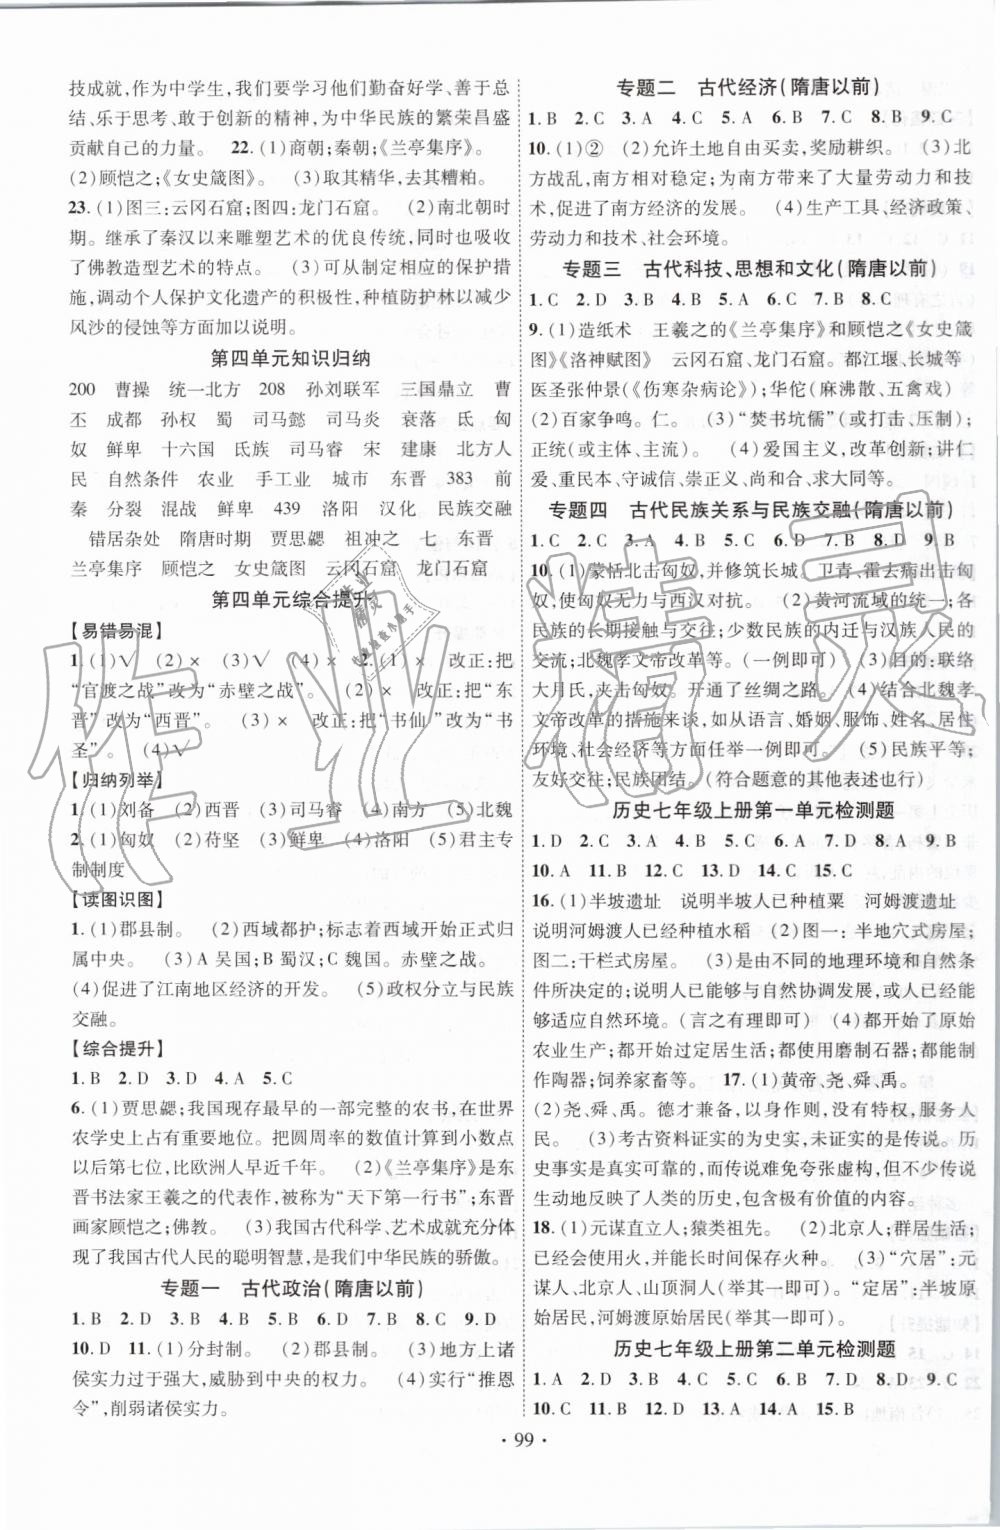 技成就,作为中学生,我们要学习他们勤奋好学、善于总
结、乐于思考、敢于创新的精神,为中华民族的繁荣昌盛
贡献自己的力量。 22. (1)商朝;秦朝;《兰亭集序》。
(2)顾恺之;《女史箴图》。 (3)取其精华,去其糟粕。
23. (1)图三:云冈石窟;图四:龙门石窟。 (2)南北朝时
期。继承了秦汉以来雕塑艺术的优良传统,同时也吸收
了佛教造型艺术的特点。 (3)可从制定相应的保护措
施,调动个人保护文化遗产的积极性,种植防护林以减少
风沙的侵蚀等方面加以说明。
第四单元知识归纳
200 曹操 统一北方 208 孙刘联军 三国鼎立 曹
丕 成都 孙权 蜀 司马懿 司马炎 衰落 氐 匈
奴 鲜卑 十六国 氐族 司马睿 宋 建康 北方人
民 自然条件 农业 手工业 城市 东晋 383 前
秦 分裂 混战 鲜卑 439 洛阳 汉化 民族交融
错居杂处 隋唐时期 贾思勰 祖冲之 七 东晋
兰亭集序 顾恺之 女史箴图 云冈石窟 龙门石窟
第四单元综合提升
【易错易混】
1. (1)√ (2)× (3)√ (4)× 2. (1)× 改正:把
“官渡之战”改为“赤壁之战”。 (2)× 改正:把“东
晋”改为“西晋”。 (3)× 改正:把“书仙”改为“书
圣”。 (4)√
【归纳列举】
1. (1)刘备 (2)西晋 (3)司马睿 (4)南方 (5)北魏
2. (1)匈奴 (2)苻坚 (3)鲜卑 (4)洛阳 (5)君主专
制制度
【读图识图】
1. (1)郡县制。 (2)西域都护;标志着西域开始正式归
属中央。 (3)A 吴国;B 蜀汉;C 魏国。赤壁之战。
(4)促进了江南地区经济的开发。 (5)政权分立与民族
交融。
【综合提升】
1. B 2. D 3. D 4. A 5. C
6. (1)贾思勰;我国现存最早的一部完整的农书,在世界
农学史上占有重要地位。把圆周率的数值计算到小数点
以后第七位,比欧洲人早近千年。 (2)《兰亭集序》是东
晋书法家王羲之的代表作,被称为“天下第一行书”;东晋
画家顾恺之;佛教。 (3)我国古代科学、艺术成就充分体
现了我国古代人民的聪明智慧,是我们中华民族的骄傲。
专题一 古代政治(隋唐以前)
1. B 2. D 3. D 4. B 5. D 6. C 7. C 8. C 9. D
10. D 11. (1)分封制。 (2)郡县制。 (3)地方上诸
侯实力过于强大,威胁到中央的权力。 (4)实行“推恩
令”,削弱诸侯实力。
专题二 古代经济(隋唐以前)
1. B 2. C 3. A 4. C 5. A 6. B 7. C 8. B 9. C
10. (1)② (2)允许土地自由买卖,奖励耕织。 (3)北
方战乱,南方相对稳定;为南方带来了大量劳动力和技
术,促进了南方经济的发展。 (4)生产工具、经济政策、
劳动力和技术、社会环境。
专题三 古代科技、思想和文化(隋唐以前)
1. C 2. D 3. B 4. A 5. C 6. D 7. B 8. C
9. (1)造纸术 王羲之的《兰亭集序》和顾恺之《女史箴
图》《洛神赋图》 云冈石窟、龙门石窟。都江堰、长城等
医圣张仲景(《伤寒杂病论》);华佗(麻沸散、五禽戏)
(2)百家争鸣。仁。 (3)“焚书坑儒”(或打击、压制);
正统(或主体、主流)。 (4)爱国主义,改革创新;讲仁
爱、重民本、守诚信、崇正义、尚和合、求大同等。
专题四 古代民族关系与民族交融(隋唐以前)
1. C 2. C 3. A 4. B 5. C 6. D 7. B 8. D 9. B
10. (1)蒙恬北击匈奴,并修筑长城。 卫青、霍去病出击匈
奴,使匈奴无力与西汉对抗。 (2)黄河流域的统一;各
民族的长期接触与交往;少数民族的内迁与汉族人民的
交流;北魏孝文帝改革等。(一例即可) (3)目的:联络
大月氏,夹击匈奴。开通了丝绸之路。 (4)结合北魏孝
文帝改革的措施来谈,如从语言、婚姻、服饰、姓名、居住
环境、社会经济等方面任举一例即可。 (5)民族平等;
友好交往;民族团结。(符合题意的其他表述也行)
历史七年级上册第一单元检测题
1. D 2. C 3. D 4. C 5. B 6. B 7. D 8. A 9. B
10. A 11. C 12. D 13. D 14. C 15. C
16. (1)半坡遗址 说明半坡人已种植粟 河姆渡遗址
说明河姆渡人已经种植水稻 (2)图一:半地穴式房屋;
图二:干栏式房屋。 (3)是由不同的地理环境和自然条
件所决定的;说明人已经能够与自然协调发展,或人已能
够适应自然环境。(言之有理即可) (4)都开始了原始
农业生产;都开始过定居生活;都使用磨制石器;都能制
作陶器;饲养家畜等。 17. (1)黄帝、尧、舜、禹。
(2)尧、舜、禹。德才兼备,以身作则,没有特权,服务人
民。 (3)考古资料证实的为史实,未证实的是传说。历
史事实真实可靠,而传说难免夸张虚构,但传说可曲折
生动地反映了人类的历史,包含极有价值的内容。
18. (1)元谋直立人;猿类祖先。 (2)北京人;群居生活;
已经能使用火,并能长时间保存火种。 (3)“穴居”:元
谋人、北京人、山顶洞人(举其一即可)。“定居”:半坡原
始居民,河姆渡原始居民(举其一即可)。
历史七年级上册第二单元检测题
1. A 2. D 3. C 4. B 5. C 6. B 7. D 8. D 9. C
10. C 11. C 12. A 13. A 14. A 15. B
· 99 ·
作业精灵